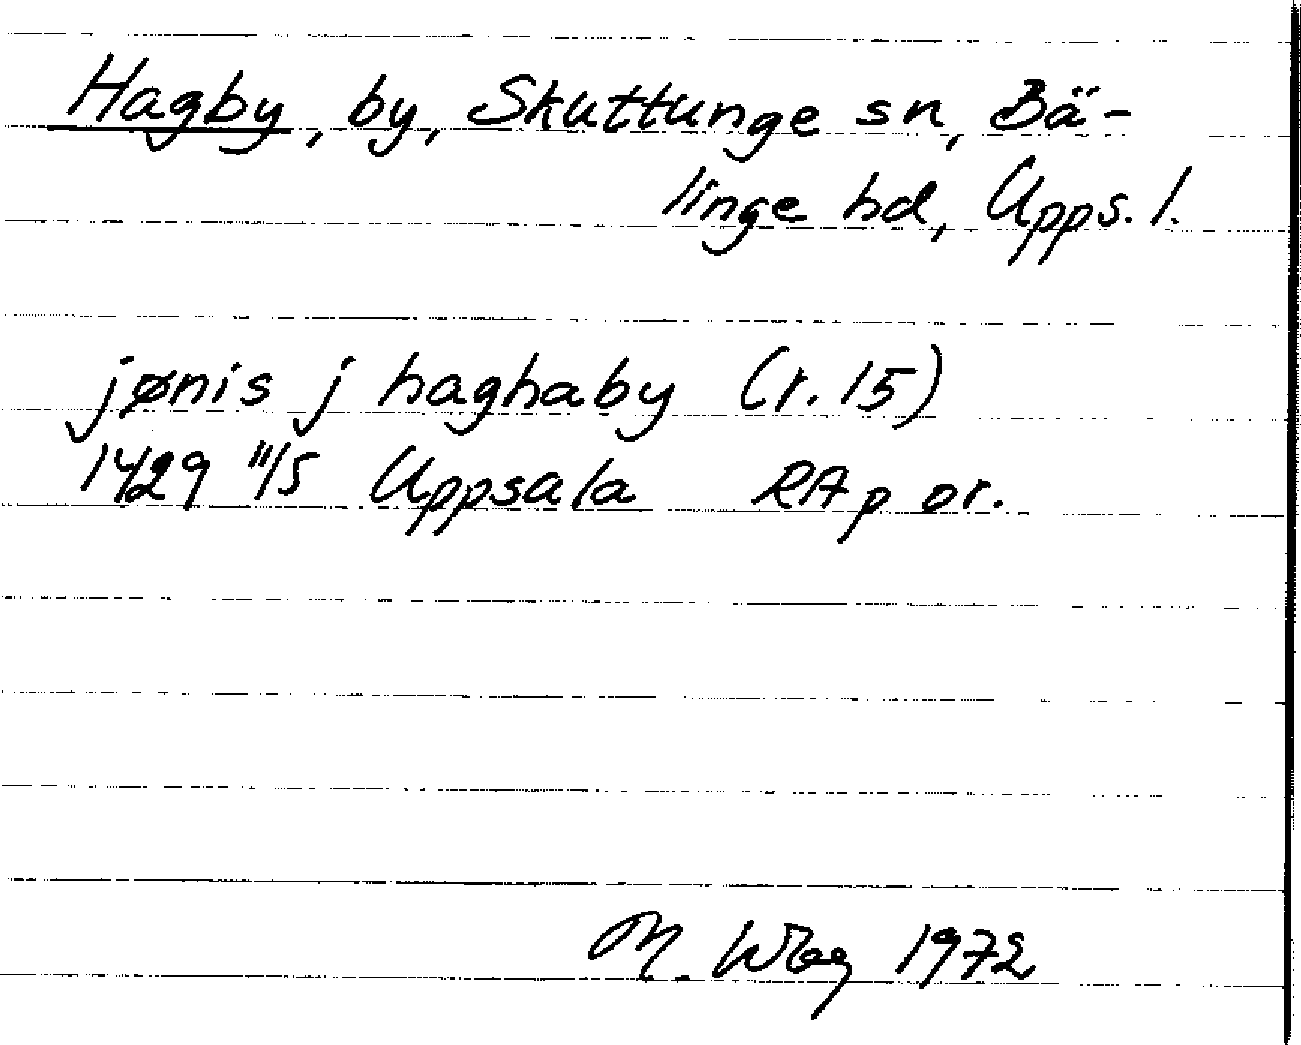 Hagby, by, Skuttunge sn, Bä-
linge hd, Upps. l.
jønis j haghaby (r. 15)
1429 11/5 Uppsala RAp or.
M. Wbg 1972